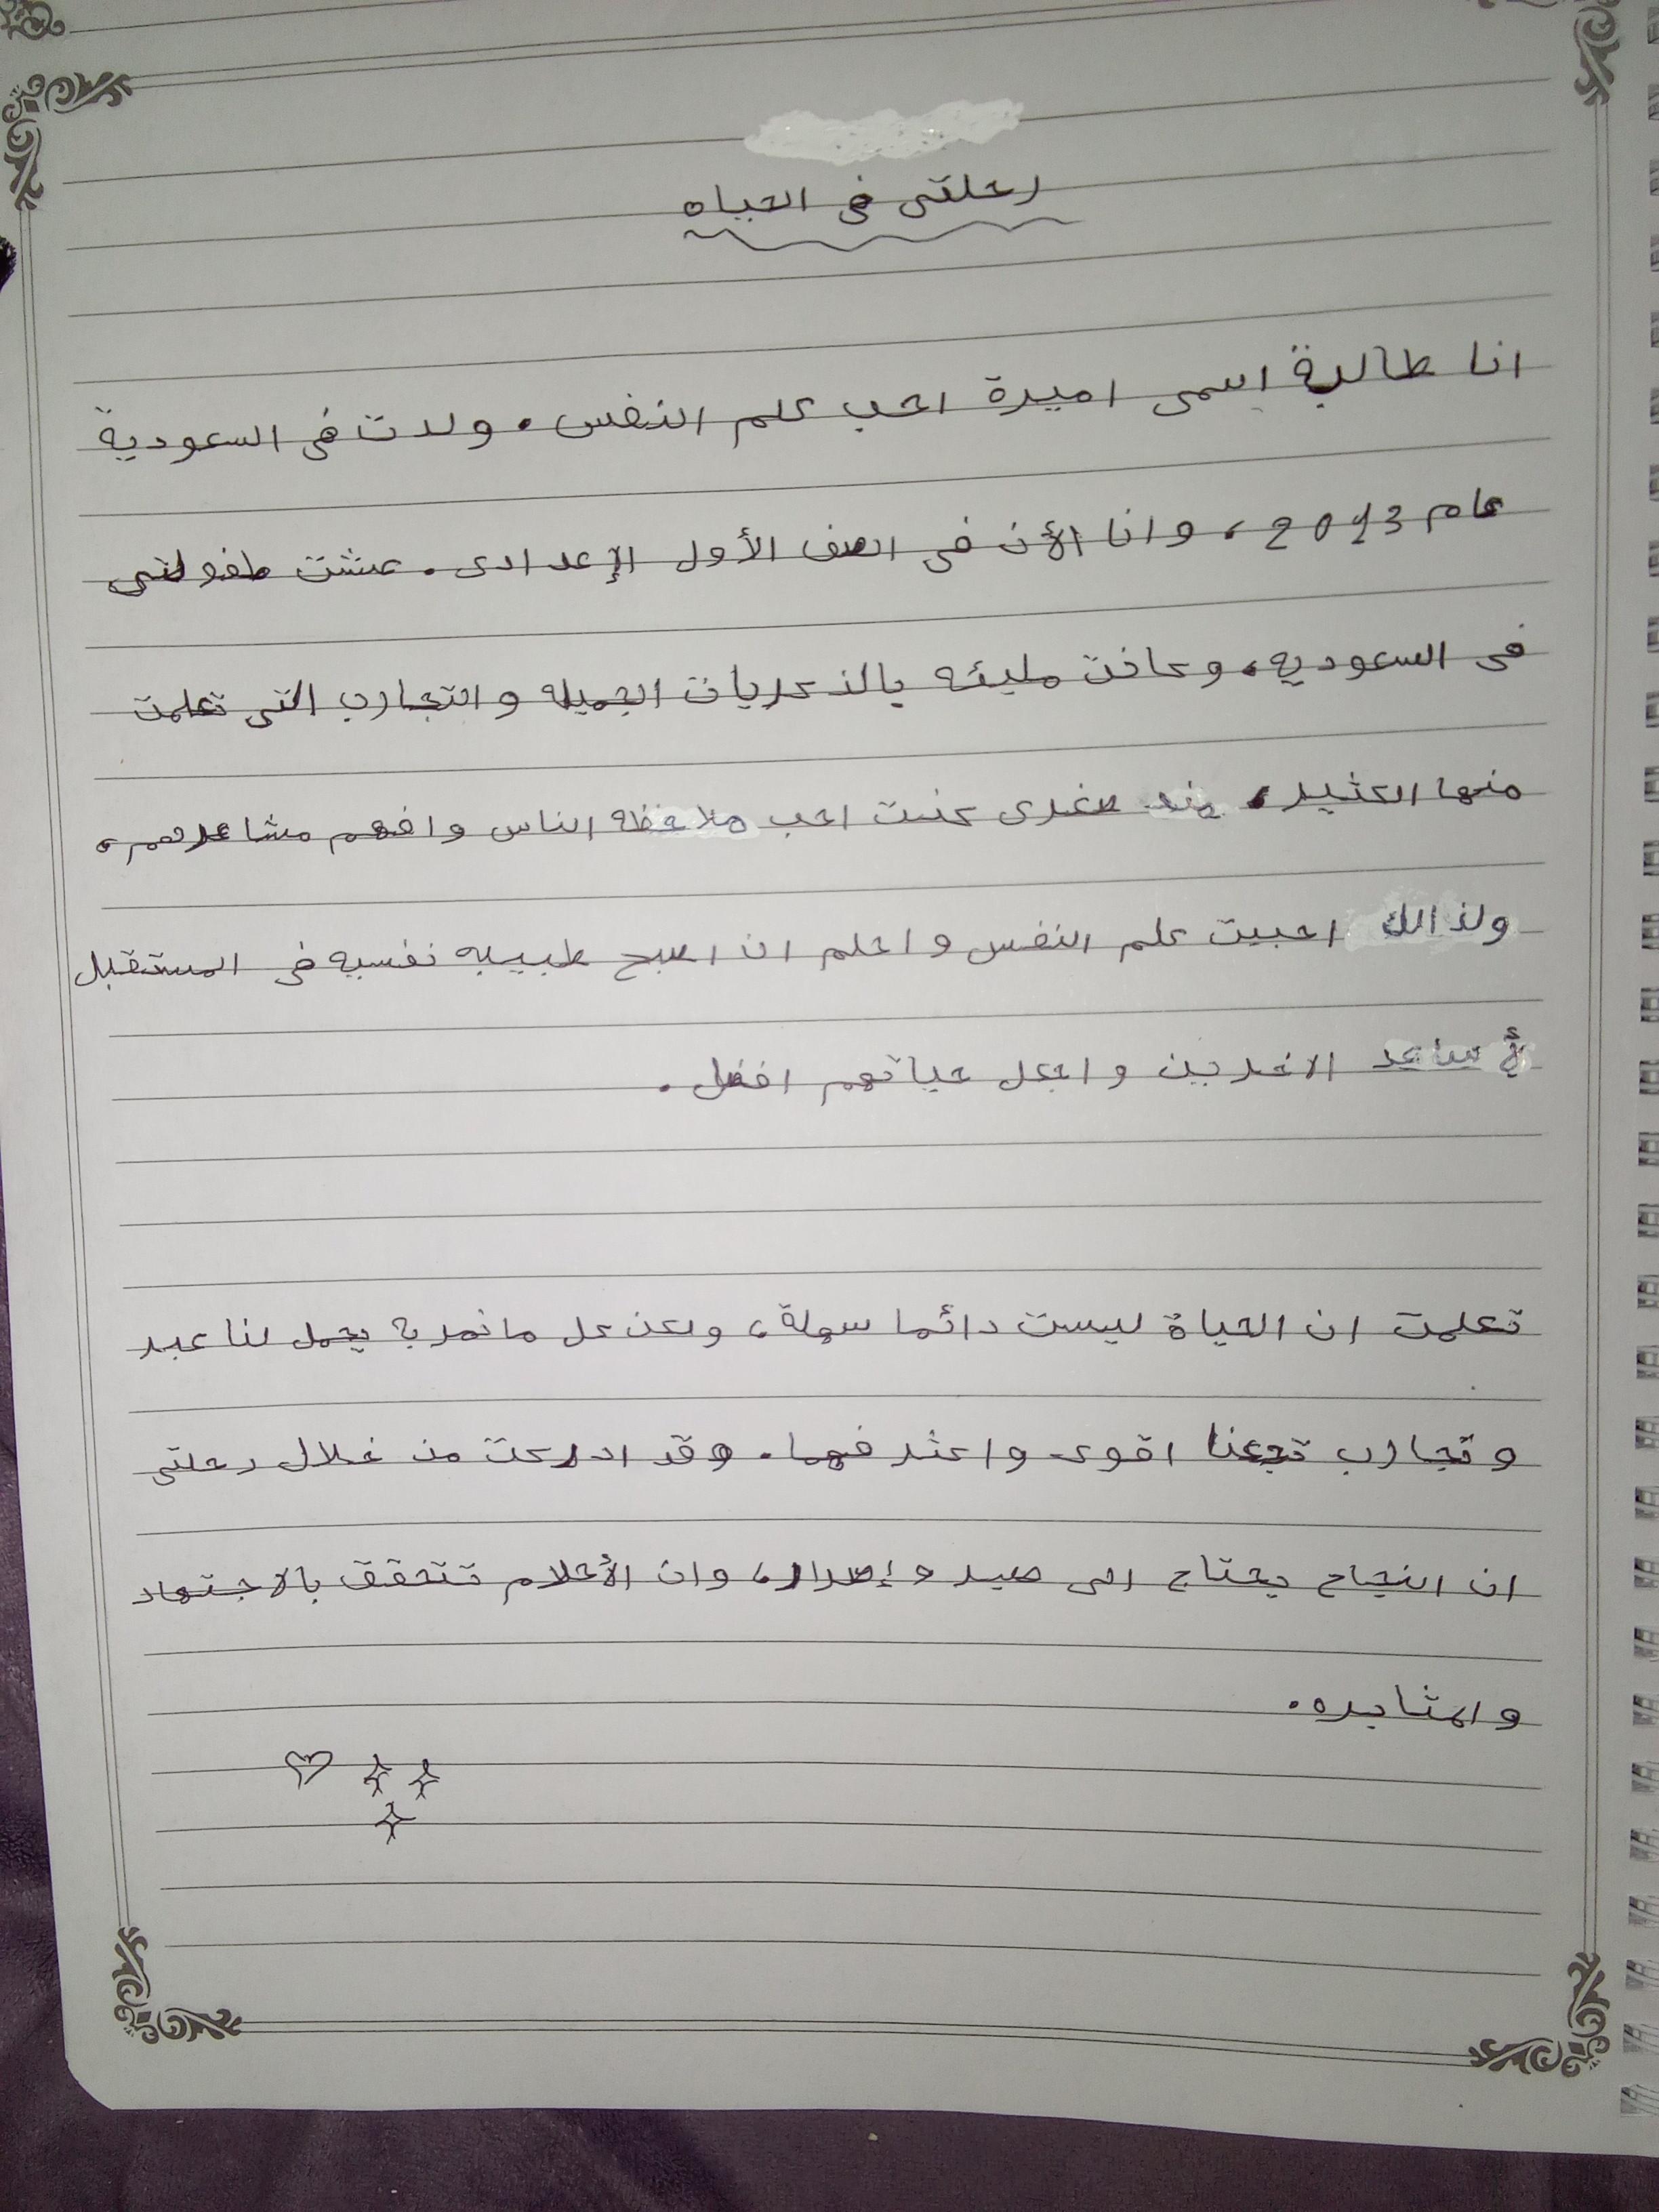 رحلتى فى الحياه
انا طالبة اسمى اميرة احب علم النفس. ولدت فى السعودية
عام 2013، وانا الأن فى الصف الأول الإعدادى. عشت طفولتى
فى السعوديه، وكانت مليئه بالذكريات الجميله والتجارب التى تعلمت
منها الكثير، منذ صغرى كنت احب ملاحظه الناس وافهم مشاعرهم،
ولذالك احببت علم النفس واحلم ان اصبح طبيبه نفسيه فى المستقبل
لأساعد الاخرين واجعل حياتهم افضل.
تعلمت ان الحياة ليست دائما سهلة، ولكن كل ما نمر به يحمل لنا عبر
وتجارب تجعنا اقوى واكثر فهما. وقد ادركت من خلال رحلتى
ان النجاح يحتاج الى صبر وإصرار، وان الأحلام تتحقق بالاجتهاد
والمثابره.